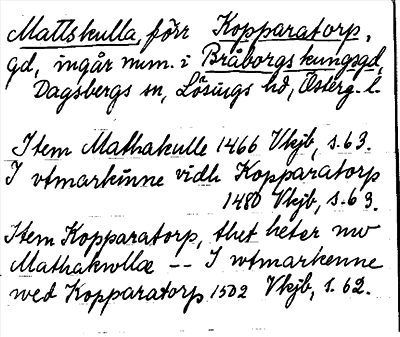 Mattskulla, förr Kopparatorp,
gd, ingår num. i Bråborgs kungsgd,
Dagsbergs sn, Lösings hd, Österg. l.
Item Mathakulle 1466 Vkjb, s. 63.
I vtmarkinne vidh Kopparatorp
1480 Vkjb, s. 63.
Item Kopparatorp, thet heter nw
Mathakwllæ -- I wtmarkenne
wed Kopparatorp 1502 Vkjb, s. 62.